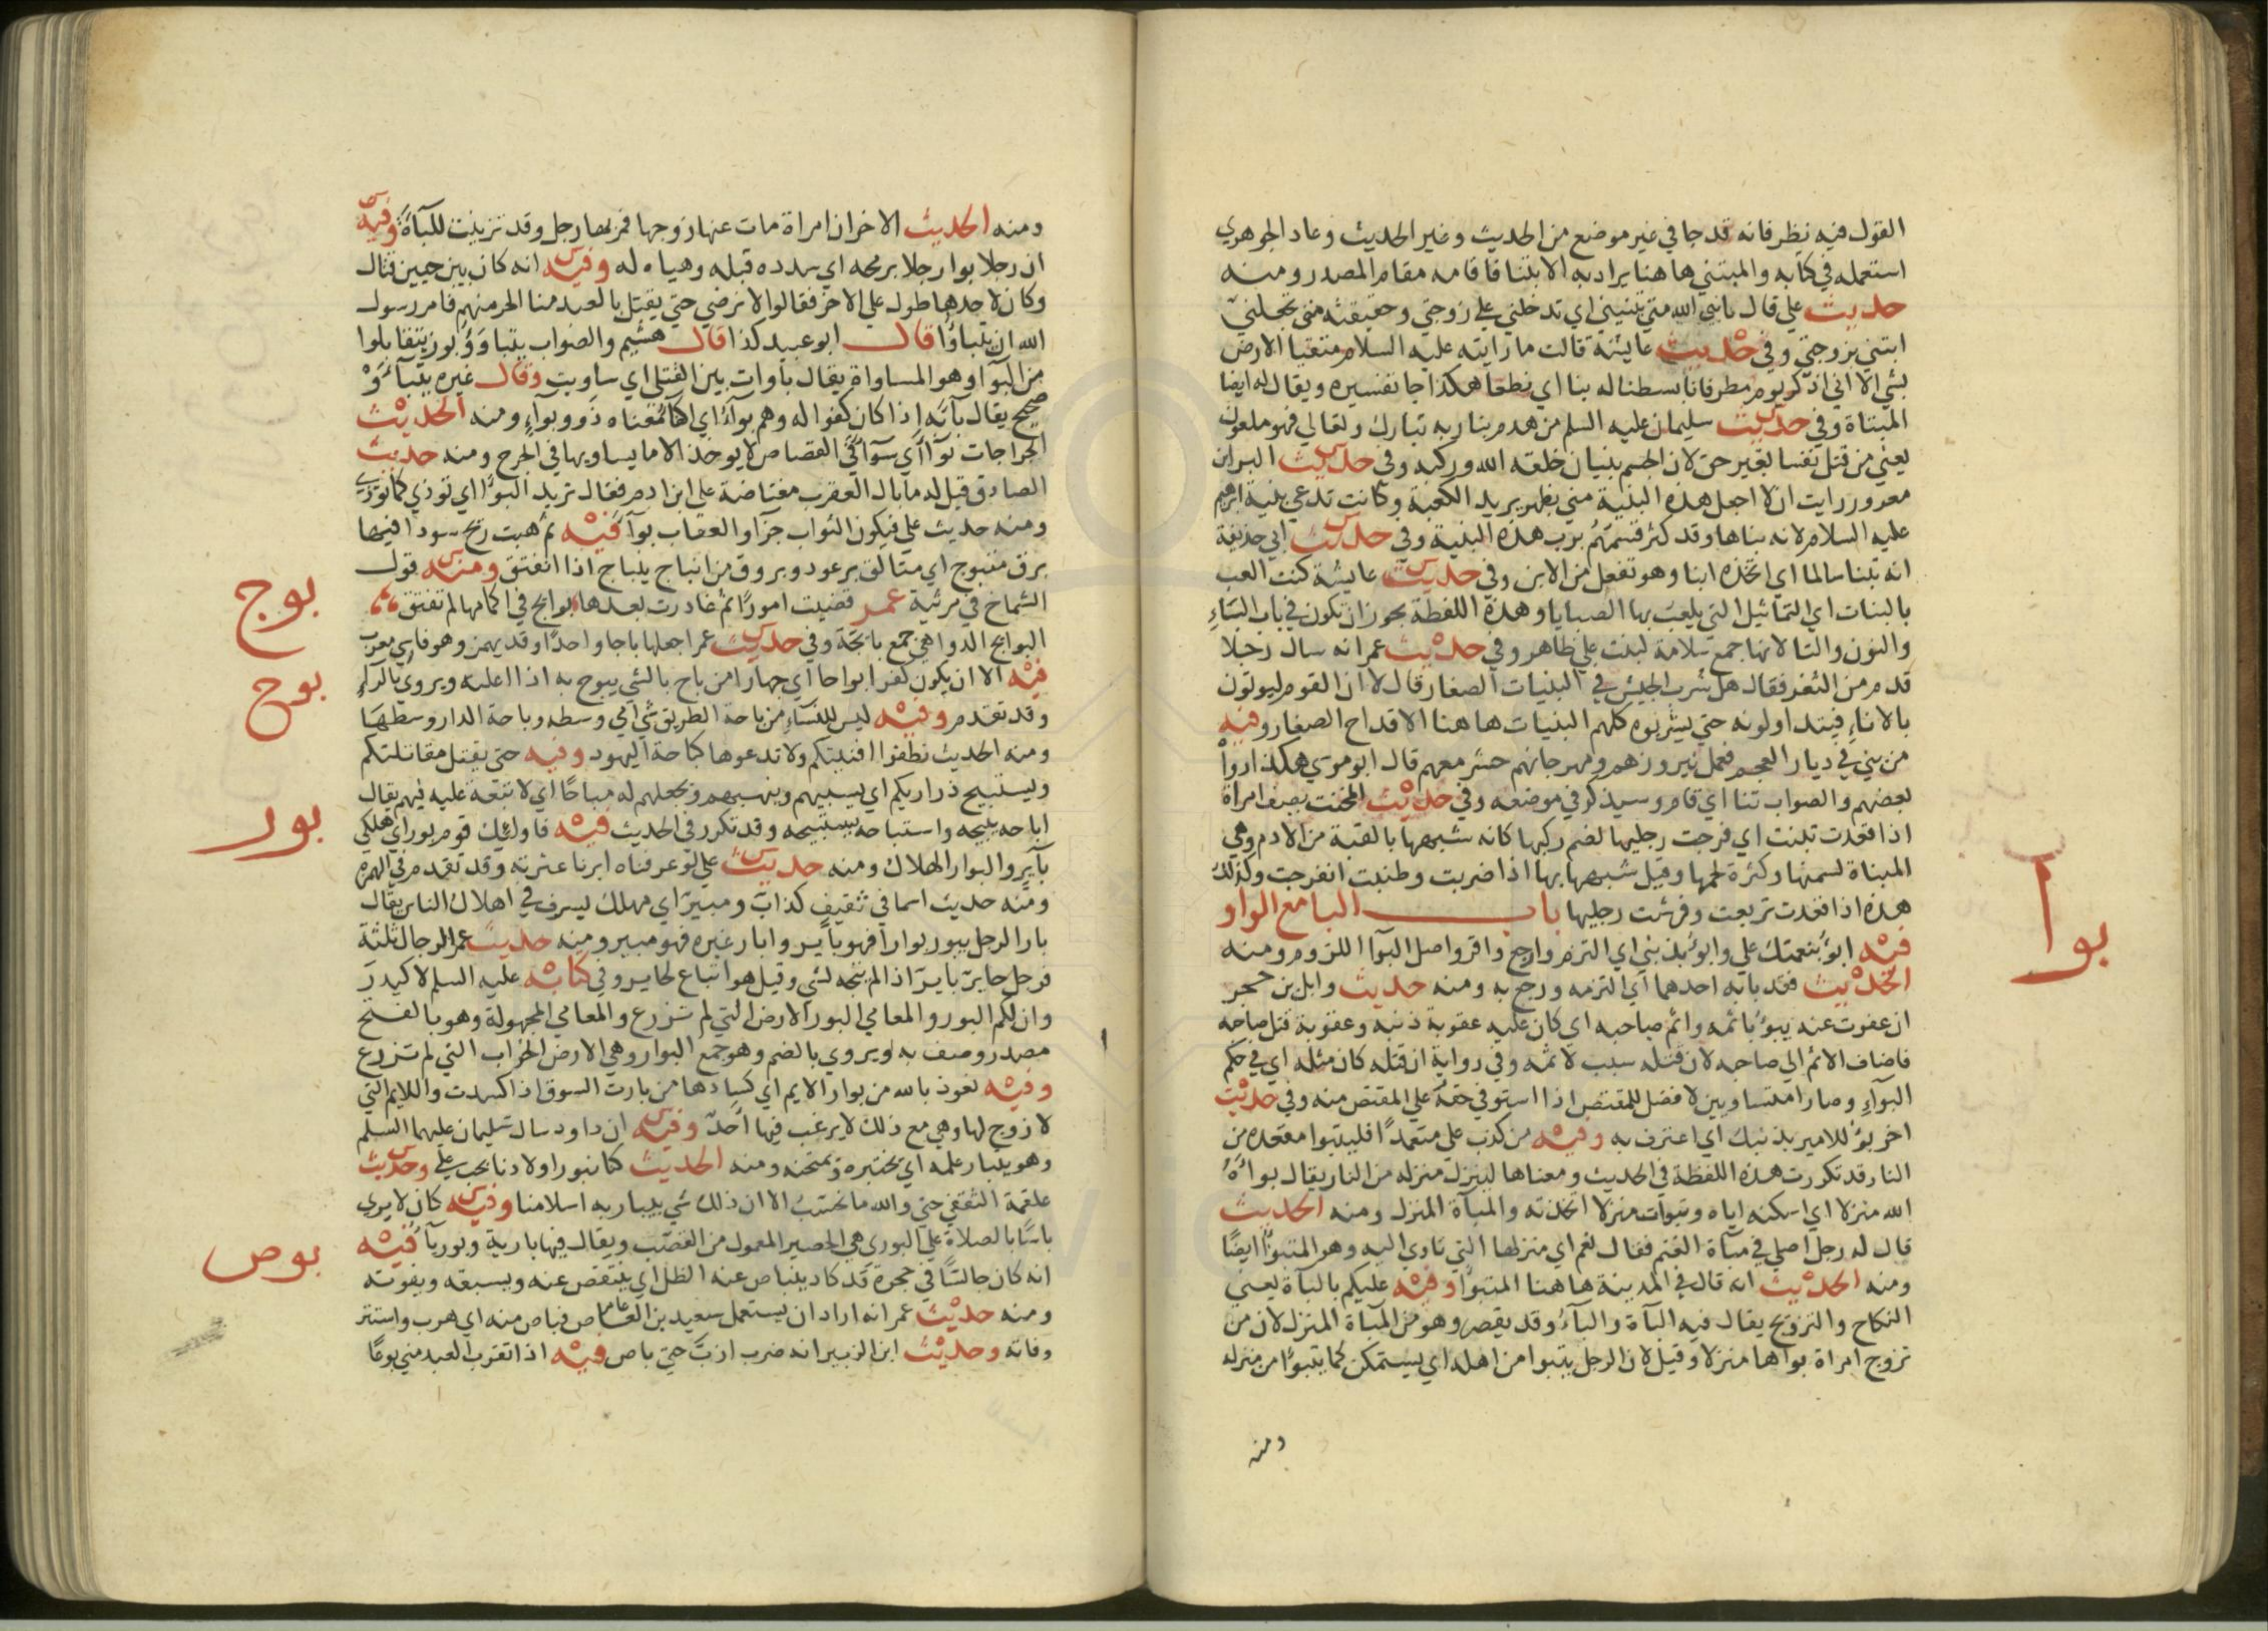 القول فيه نظر فانه قد جا في غير موضع من الحديث وغير الحديث وعاد الجوهري
استعمله في كتابه والمبتني هاهنا يراد به الابتنا فاقامه مقام المصدر ومنه
حديث علي قال يانبي الله متي تبنيني اي تدخلني علي زوجتي وحقيقته متي تجعلني
ابتني بزوجتي وفي حديث عايشة قالت ما رايته عليه السلام متقيا الارض
بشي الا اني اذكر يوم مطر فانا بسطنا له بنا اي نطعا هكذا جا تفسيره ويقال له ايضا
المبناة وفي حديث سليمان عليه السلم من هدم بنا ربه تبارك وتعالي فهو ملعون
يعني من قتل نفسا بغير حق لان الجسم بنيان خلقه الله وركبه وفي حديث البرا بن
معرور رايت ان لا اجعل هذه البنية مني بظهر يريد الكعبة وكانت تدعي بنية ابرهيم
عليه السلام لانه بناها وقد كثر قسمهم برب هذه البنية وفي حديث ابي حذيفة
انه تبنا سالما اي اتخذه ابنا وهو تفعل من الابن وفي حديث عايشة كنت العب
بالبنات اي التماثيل التي يلعب بها الصبايا وهذه اللفظة يجوز ان تكون في باب الباء
والنون والتا لانها جمع سلامة لبنت علي ظاهر وفي حديث عمر انه سال رجلا
قدم من الثغر فقال هل شرب الجيش في البنيات الصغار قال لا ان القوم ليوتون
بالاناء فيتداولونه حتي يشربوه كلهم البنيات هاهنا الاقداح الصغار وفيه
من بني في ديار العجم فعمل نيروزهم ومهرجانهم حشر معهم قال ابو موسي هكذا رواه
بعضهم والصواب تنا اي قام وسيذكر في موضعه وفي حديث المخنث يصف امراة
اذا قعدت تبنت اي فرجت رجليها لضم ركبها كانه شبهها بالقبة من الادم وهي
المبناة لسمنها وكثرة لحمها وقيل شبهها بها اذا ضربت وطنبت انفرجت وكذلك
هذه اذا قعدت تربعت وفرشت رجليها باب البا مع الواو
فيه ابؤ بنعمتك علي وابوء بذنبي اي التزم وارجع واقر واصل البوآ اللزوم ومنه
الحديث فقد با به احدهما اي التزمه ورجع به ومنه حديث وايل بن حجر
ان عفوت عنه يبوء باثمه واثم صاحبه اي كان عليه عقوبة ذنبه وعقوبة قتل صاحبه
فاضاف الاثم الي صاحبه لان قتله سبب لاثمه وفي رواية ان قتله كان مثله اي في حكم
البوآء وصارا متساويين لا فضل للمقتص اذا استوفي حقه علي المقتص منه وفي حديث
اخر بوء للامير بذنبك اي اعترف به وفيه من كذب علي متعمدا فليتبوا مقعده من
النار قد تكررت هذه اللفظة في الحديث ومعناها لينزل منزله من النار يقال بواه
الله منزلا اي اسكنه اياه وتبوات منزلا اتخذته والمبآة المنزل ومنه الحديث
قال له رجل اصلي في مبآة الغنم فقال نعم اي منزلها التي تاوي اليه وهو المتبوا ايضا
ومنه الحديث انه قال في المدينة هاهنا المتبوا وفيه عليكم بالبآة يعني
النكاح والتزويج يقال فيه البآة والبآء وقد يقصر وهو من المبآة المنزل لان من
تزوج امراة بواها منزلا وقيل لان الرجل يتبوا من اهله اي يستمكن كما يتبوا من منزله
ومنه
بوا
ومنه الحديث الاخر ان امراة مات عنها زوجها فمر بها رجل وقد تزينت للبآة وفيه
ان رجلا بوا رجلا برمحه اي سدده قبله وهياه له وفيه انه كان بين حيين قتال
وكان لاحدهما طول علي الاخر فقالوا لا نرضي حتي يقتل بالعبد منا الحر منهم فامر رسول
الله ان يتباوا قال ابو عبيد كذا قال هشيم والصواب يتباوؤا بوزن يتقاتلوا
من البوآ وهو المساواة يقال باوات بين القتلي اي ساويت وقال غيره يتبآءوا
صحيح يقال بآء به اذا كان كفوا له وهم بوآء اي اكفاء معناه ذوو بوآء ومنه الحديث
الجراحات بوآ اي سوآ في القصاص لا يوخذ الا ما يساويها في الجرح ومنه حديث
الصادق قيل له ما بال العقرب مغتاضة علي ابن ادم فقال تريد البوآ اي توذي كما توذي
ومنه حديث علي فيكون الثواب جزآ والعقاب بوآ فيه ثم هبت ريح سودا فيها
برق متبوج اي متالق برعود وبروق من انباج ينباج اذا انفتق ومنه قول
الشماخ في مرثية عمر قضيت امورا ثم غادرت بعدها بوايج في اكمامها لم تفتق
البوايج الدواهي جمع بايجة وفي حديث عمر اجعلها باجا واحدا وقد يهمز وهو فارسي معرب
فيه الا ان يكون كفرا بواحا اي جهارا من باح بالشي يبوح به اذا اعلنه ويروي بالرآء
وقد تقدم وفيه ليس للنسآء من باحة الطريق شي اي وسطه وباحة الدار وسطها
ومنه الحديث نظفوا افنيتكم ولا تدعوها كباحة اليهود وفيه حتي يقتل مقاتلتكم
ويستبيح ذراريكم اي يسبيهم وينهبهم ويجعلهم له مباحا اي لا تبعة عليه فيهم يقال
اباحه يبيحه واستباحه يستبيحه وقد تكرر في الحديث فيه فاوليك قوم بور اي هلكي
بآير والبوار الهلاك ومنه حديث علي لو عرفناه ابرنا عترته وقد تقدم في الهمزة
ومنه حديث اسما في ثقيف كذاب ومبير اي مهلك يسرف في اهلاك الناس يقال
بار الرجل يبور بوارا فهو باير وابار غيره فهو مبير ومنه حديث عمر الرجال ثلثة
فرجل حاير باير اذا لم يتجه لشي وقيل هو اتباع لحاير وفي كتابه عليه السلم لاكيدر
وان لكم البور والمعامي البور الارض التي لم تزرع والمعامي المجهولة وهو بالفتح
مصدر وصف به ويروي بالضم وهو جمع البوار وهي الارض الخراب التي لم تزرع
وفيه نعوذ بالله من بوار الايم اي كسادها من بارت السوق اذا كسدت والايم التي
لا زوج لها وهي مع ذلك لا يرغب فيها احد وفيه ان داود سال سليمان عليهما السلم
وهو يبتار علمه اي يختبره ويمتحنه ومنه الحديث كنا نبور اولادنا بحب علي وحديث
علقمة الثقفي حتي والله ما نحسب الا ان ذلك شي يبتار به اسلامنا وفيه كان لا يري
باسا بالصلاة علي البوري هي الحصير المعمول من القصب ويقال فيها بارية وبوريآ فيه
انه كان جالسا في حجرة قد كاد ينباص عنه الظل اي ينتقص عنه ويسبقه ويفوته
ومنه حديث عمر انه اراد ان يستعمل سعيد بن العاص فباص منه اي هرب واستتر
وفاته وحديث ابن الزبير انه ضرب ازب حتي باص فيه اذا تقرب العبد مني بوعا
بوج
بوح
بور
بوص